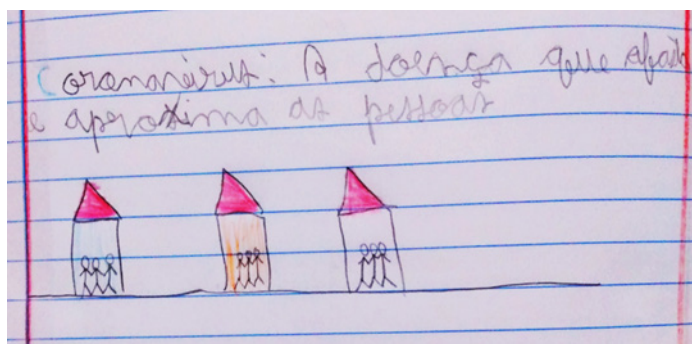 Coronavírus: A doença que afasta
e aproxima as pessoas